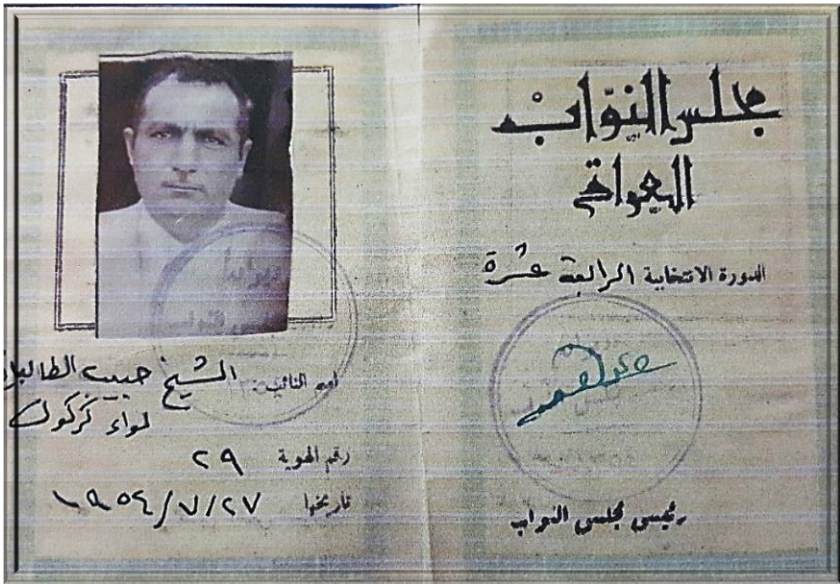 مجلس النوّاب
العراقي
الدورة الانتخابية الرابعة عشرة
رئيس مجلس النواب
اسم النائب: الشيخ حبيب الطالباني
لواء كركوك
رقم الهوية ٢٩
تاريخها ١٩٥٤/٧/٢٧